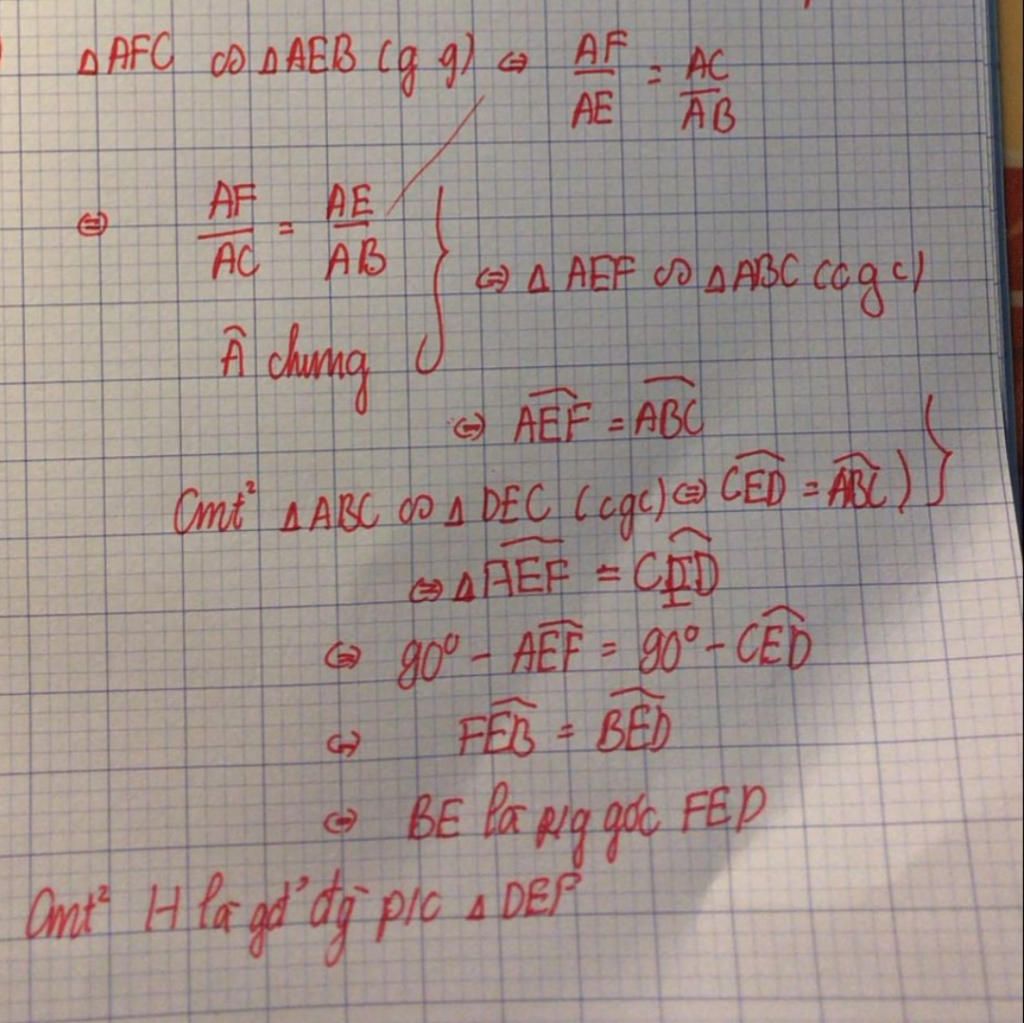 ΔAFC ∽ ΔAEB (g g) ⇔ AF/AE = AC/AB
⇔ AF/AC = AE/AB
 chung
⇔ Δ AEF ∽ ΔABC (c g c)
⇔ \widehat{AEF} = \widehat{ABC}
Cmt² ΔABC ∽ Δ DEC (cgc) ⇔ \widehat{CED} = \widehat{ABC})
⇔ Δ \widehat{AEF} = \widehat{CED}
⇔ 90° - \widehat{AEF} = 90° - \widehat{CED}
⇔ \widehat{FEB} = \widehat{BED}
⇔ BE là p/g góc FED
Cmt² H là gđ' đg p/c Δ DEF